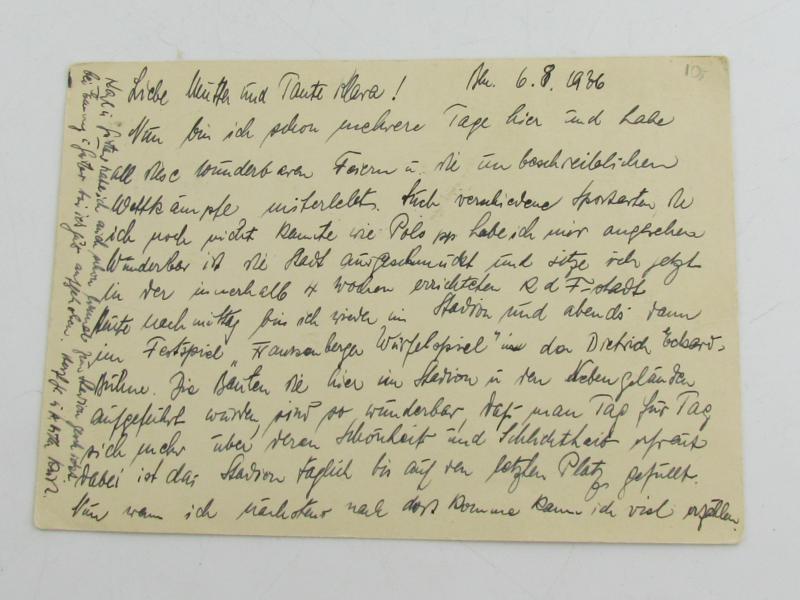 Bln. 6.8.1936
Liebe Mutter und Tante Klara!
Nun bin ich schon mehrere Tage hier und habe
all diese wunderbaren Feiern u. die unbeschreiblichen
Wettkämpfe miterlebt. Auch verschiedene Sportarten die
ich noch nicht kannte wie Polo pp habe ich mir angesehen
Wunderbar ist die Stadt ausgeschmückt und sitze ich jetzt
in der innerhalb 4 Wochen errichteten K d F-stadt
Heute nachmittag bin ich wieder im Stadion und abends dann
im Festspiel „Frankenberger Würfelspiel" in der Dietrich Eckard-
Bühne. Die Bauten die hier im Stadion u den Nebengeländen
aufgeführt wurden, sind so wunderbar, daß man Tag für Tag
sich mehr über deren Schönheit und Schlichtheit erfreut
dabei ist das Stadion täglich bis auf den letzten Platz gefüllt.
Nun wenn ich nächstens nach dort komme kann ich viel erzählen.
bei Fanny u bin ich gut aufgehoben. Herzl.
105